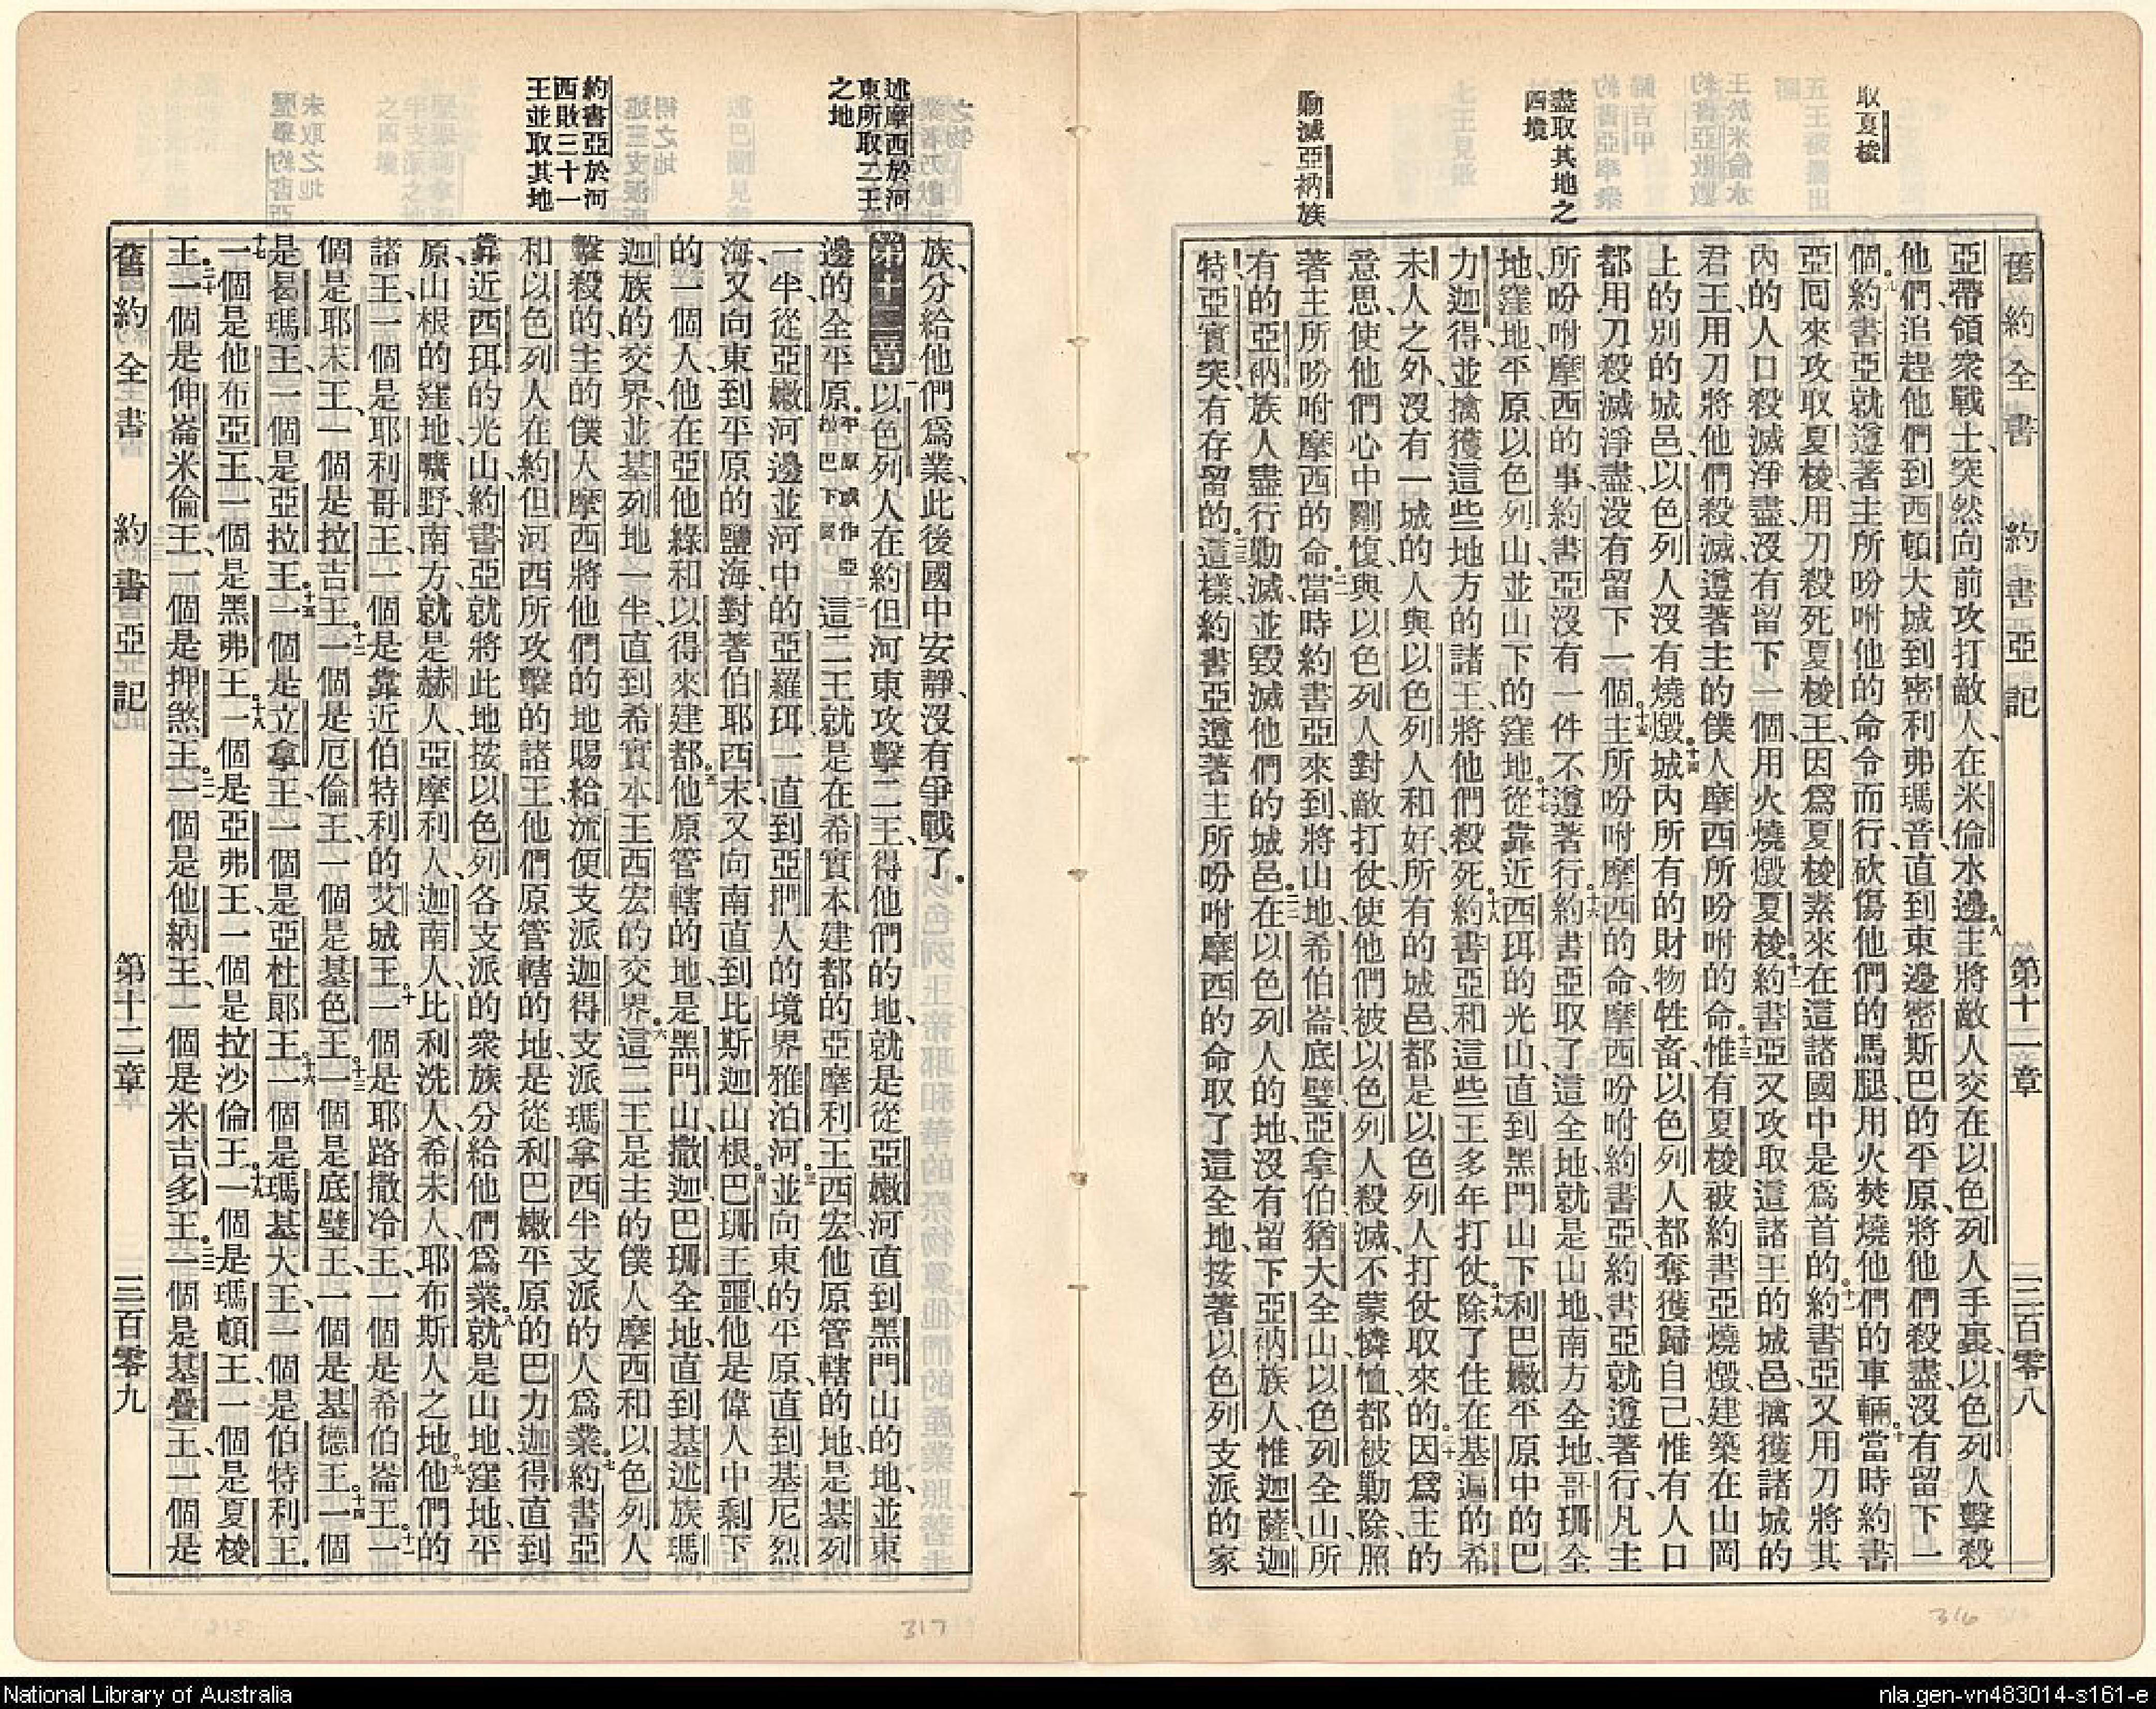 取夏梭
盡取其地之
四境
勦滅亞衲族
舊約全書 約書亞記 第十一章 三百零八
亞帶領衆戰士、突然向前攻打敵人、在米倫水邊。八主將敵人交在以色列人手裏、以色列人擊殺
他們、追趕他們、到西頓大城、到密利弗瑪音、直到東邊密斯巴的平原、將他們殺盡、沒有留下一
個。九約書亞就遵著主所吩咐他的命令而行、砍傷他們的馬腿、用火焚燒他們的車輛。十當時約書
亞回來攻取夏梭、用刀殺死夏梭王、因爲夏梭素來在這諸國中是爲首的。十一約書亞又用刀將其
內的人口殺滅淨盡、沒有留下一個、用火燒燬夏梭。十二約書亞又攻取這諸王的城邑、擒獲諸城的
君王、用刀將他們殺滅、遵著主的僕人摩西所吩咐的命。十三惟有夏梭被約書亞燒燬、建築在山岡
上的別的城邑、以色列人沒有燒燬。十四城內所有的財物牲畜、以色列人都奪獲歸自己、惟有人口
都用刀殺滅淨盡、沒有留下一個。十五主所吩咐摩西的命、摩西吩咐約書亞、約書亞就遵著行、凡主
所吩咐摩西的事、約書亞沒有一件不遵著行。十六約書亞取了這全地、就是山地、南方全地、哥珊全
地、窪地、平原、以色列山、並山下的窪地。十七從靠近西珥的光山、直到黑門山下、利巴嫩平原中的巴
力迦得、並擒獲這些地方的諸王、將他們殺死。十八約書亞和這些王多年打仗。十九除了住在基遍的希
未人之外、沒有一城的人與以色列人和好、所有的城邑、都是以色列人打仗取來的。二十因爲主的
意思、使他們心中剛愎、與以色列人對敵打仗、使他們被以色列人殺滅、不蒙憐恤、都被勦除、照
著主所吩咐摩西的命。二一當時約書亞來到、將山地、希伯崙、底璧、亞拿伯、猶大全山、以色列全山、所
有的亞衲族人盡行勦滅、並毀滅他們的城邑。二二在以色列人的地、沒有留下亞衲族人、惟迦薩、迦
特、亞實突、有存留的。二三這樣、約書亞遵著主所吩咐摩西的命、取了這全地、按著以色列支派的家
述摩西於河
東所取二王
之地
約書亞於河
西敗三十一
王並取其地
族、分給他們爲業、此後國中安靜、沒有爭戰了。
第十二章 一以色列人在約但河東攻擊二王、得他們的地、就是從亞嫩河直到黑門山的地、並東
邊的全平原。平原或作亞拉巴下同 二這二王就是在希實本建都的亞摩利王西宏、他原管轄的地、是基列
一半、從亞嫩河邊並河中的亞羅珥、一直到亞捫人的境界雅泊河。三並向東的平原、直到基尼烈
海、又向東到平原的鹽海、對著伯耶西末、又向南直到比斯迦山根。四巴珊王噩、他是偉人中剩下
的一個人、他在亞他綠和以得來建都。五他原管轄的地、是黑門山、撒迦、巴珊全地、直到基述族瑪
迦族的交界、並基列地一半、直到希實本王西宏的交界。六這二王是主的僕人摩西和以色列人
擊殺的、主的僕人摩西將他們的地賜給流便支派、迦得支派、瑪拿西半支派的人爲業。七約書亞
和以色列人在約但河西所攻擊的諸王、他們原管轄的地、是從利巴嫩平原的巴力迦得、直到
靠近西珥的光山、約書亞就將此地按以色列各支派的衆族分給他們爲業。八就是山地、窪地、平
原、山根的窪地、曠野、南方、就是赫人、亞摩利人、迦南人、比利洗人、希未人、耶布斯人之地。九他們的
諸王、一個是耶利哥王、一個是靠近伯特利的艾城王。十一個是耶路撒冷王、一個是希伯崙王。十一一
個是耶末王、一個是拉吉王。十二一個是厄倫王、一個是基色王。十三一個是底璧王、一個是基德王。十四一個
是曷瑪王、一個是亞拉王。十五一個是立拿王、一個是亞杜郎王。十六一個是瑪基大王、一個是伯特利王。
十七一個是他布亞王、一個是黑弗王。十八一個是亞弗王、一個是拉沙倫王。十九一個是瑪頓王、一個是夏梭
王。二十一個是伸崙米倫王、一個是押煞王。二一一個是他納王、一個是米吉多王。二二一個是基疊王、一個是
舊約全書 約書亞記 第十二章 三百零九
317
316
National Library of Australia
nla.gen-vn483014-s161-e